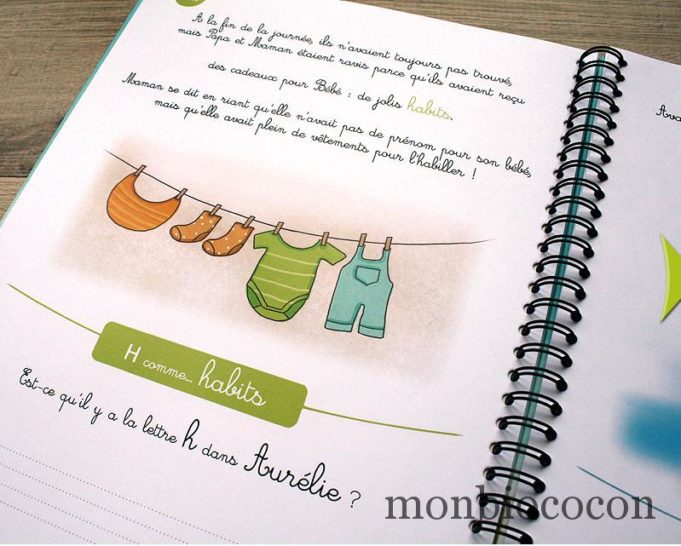 A la fin de la journée, ils n'avaient toujours pas trouvé,
mais Papa et Maman étaient ravis parce qu'ils avaient reçu
des cadeaux pour Bébé : de jolis habits.
Maman se dit en riant qu'elle n'avait pas de prénom pour son bébé,
mais qu'elle avait plein de vêtements pour l'habiller !
H comme... habits
Est-ce qu'il y a la lettre h dans Aurélie ?
monbiococon